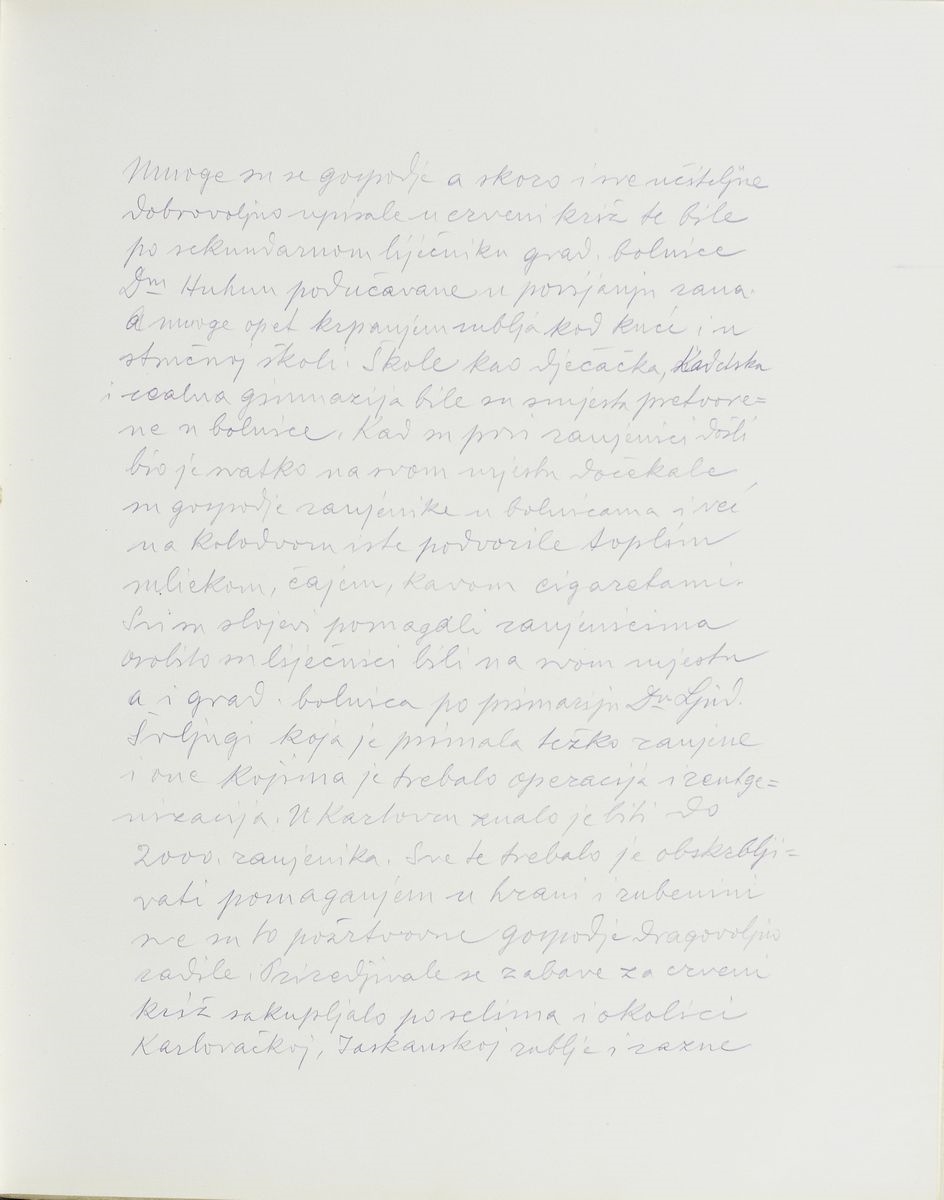 Mnoge su se gospodje a skoro i sve učiteljice
dobrovoljno upisale u crveni križ te bile
po sekundarnom liječniku grad. bolnice
Drm Huhnu podučavane u povijanju rana.
A mnoge opet krpanjem rublja kod kuće i u
stručnoj školi. Škole kao dječačka, Kadetska
i realna gimnazija bile su smjesta pretvore=
ne u bolnice. Kad su prvi ranjenici došli
bio je svatko na svom mjestu dočekale
su gospodje ranjenike u bolnicama i već
na Kolodvoru iste podvorile toplim
mliekom, čajem, kavom cigaretami.
Svi su slojevi pomagali ranjenicima
osobito su liječnici bili na svom mjestu
a i grad. bolnica po primariju Dr. Ljud.
Švljugi koja je primala težko ranjene
i one kojima je trebalo operacija i rentge=
nizacija. U Karlovcu znalo je biti do
2000. ranjenika. Sve te trebalo je obskrblji=
vati pomaganjem u hrani i rubenini
sve su to požrtvovne gospodje dragovoljno
radile. Priredjivale se zabave za crveni
križ sakupljalo po selima i okolici
Karlovačkoj, Jaskanskoj rublje i razne